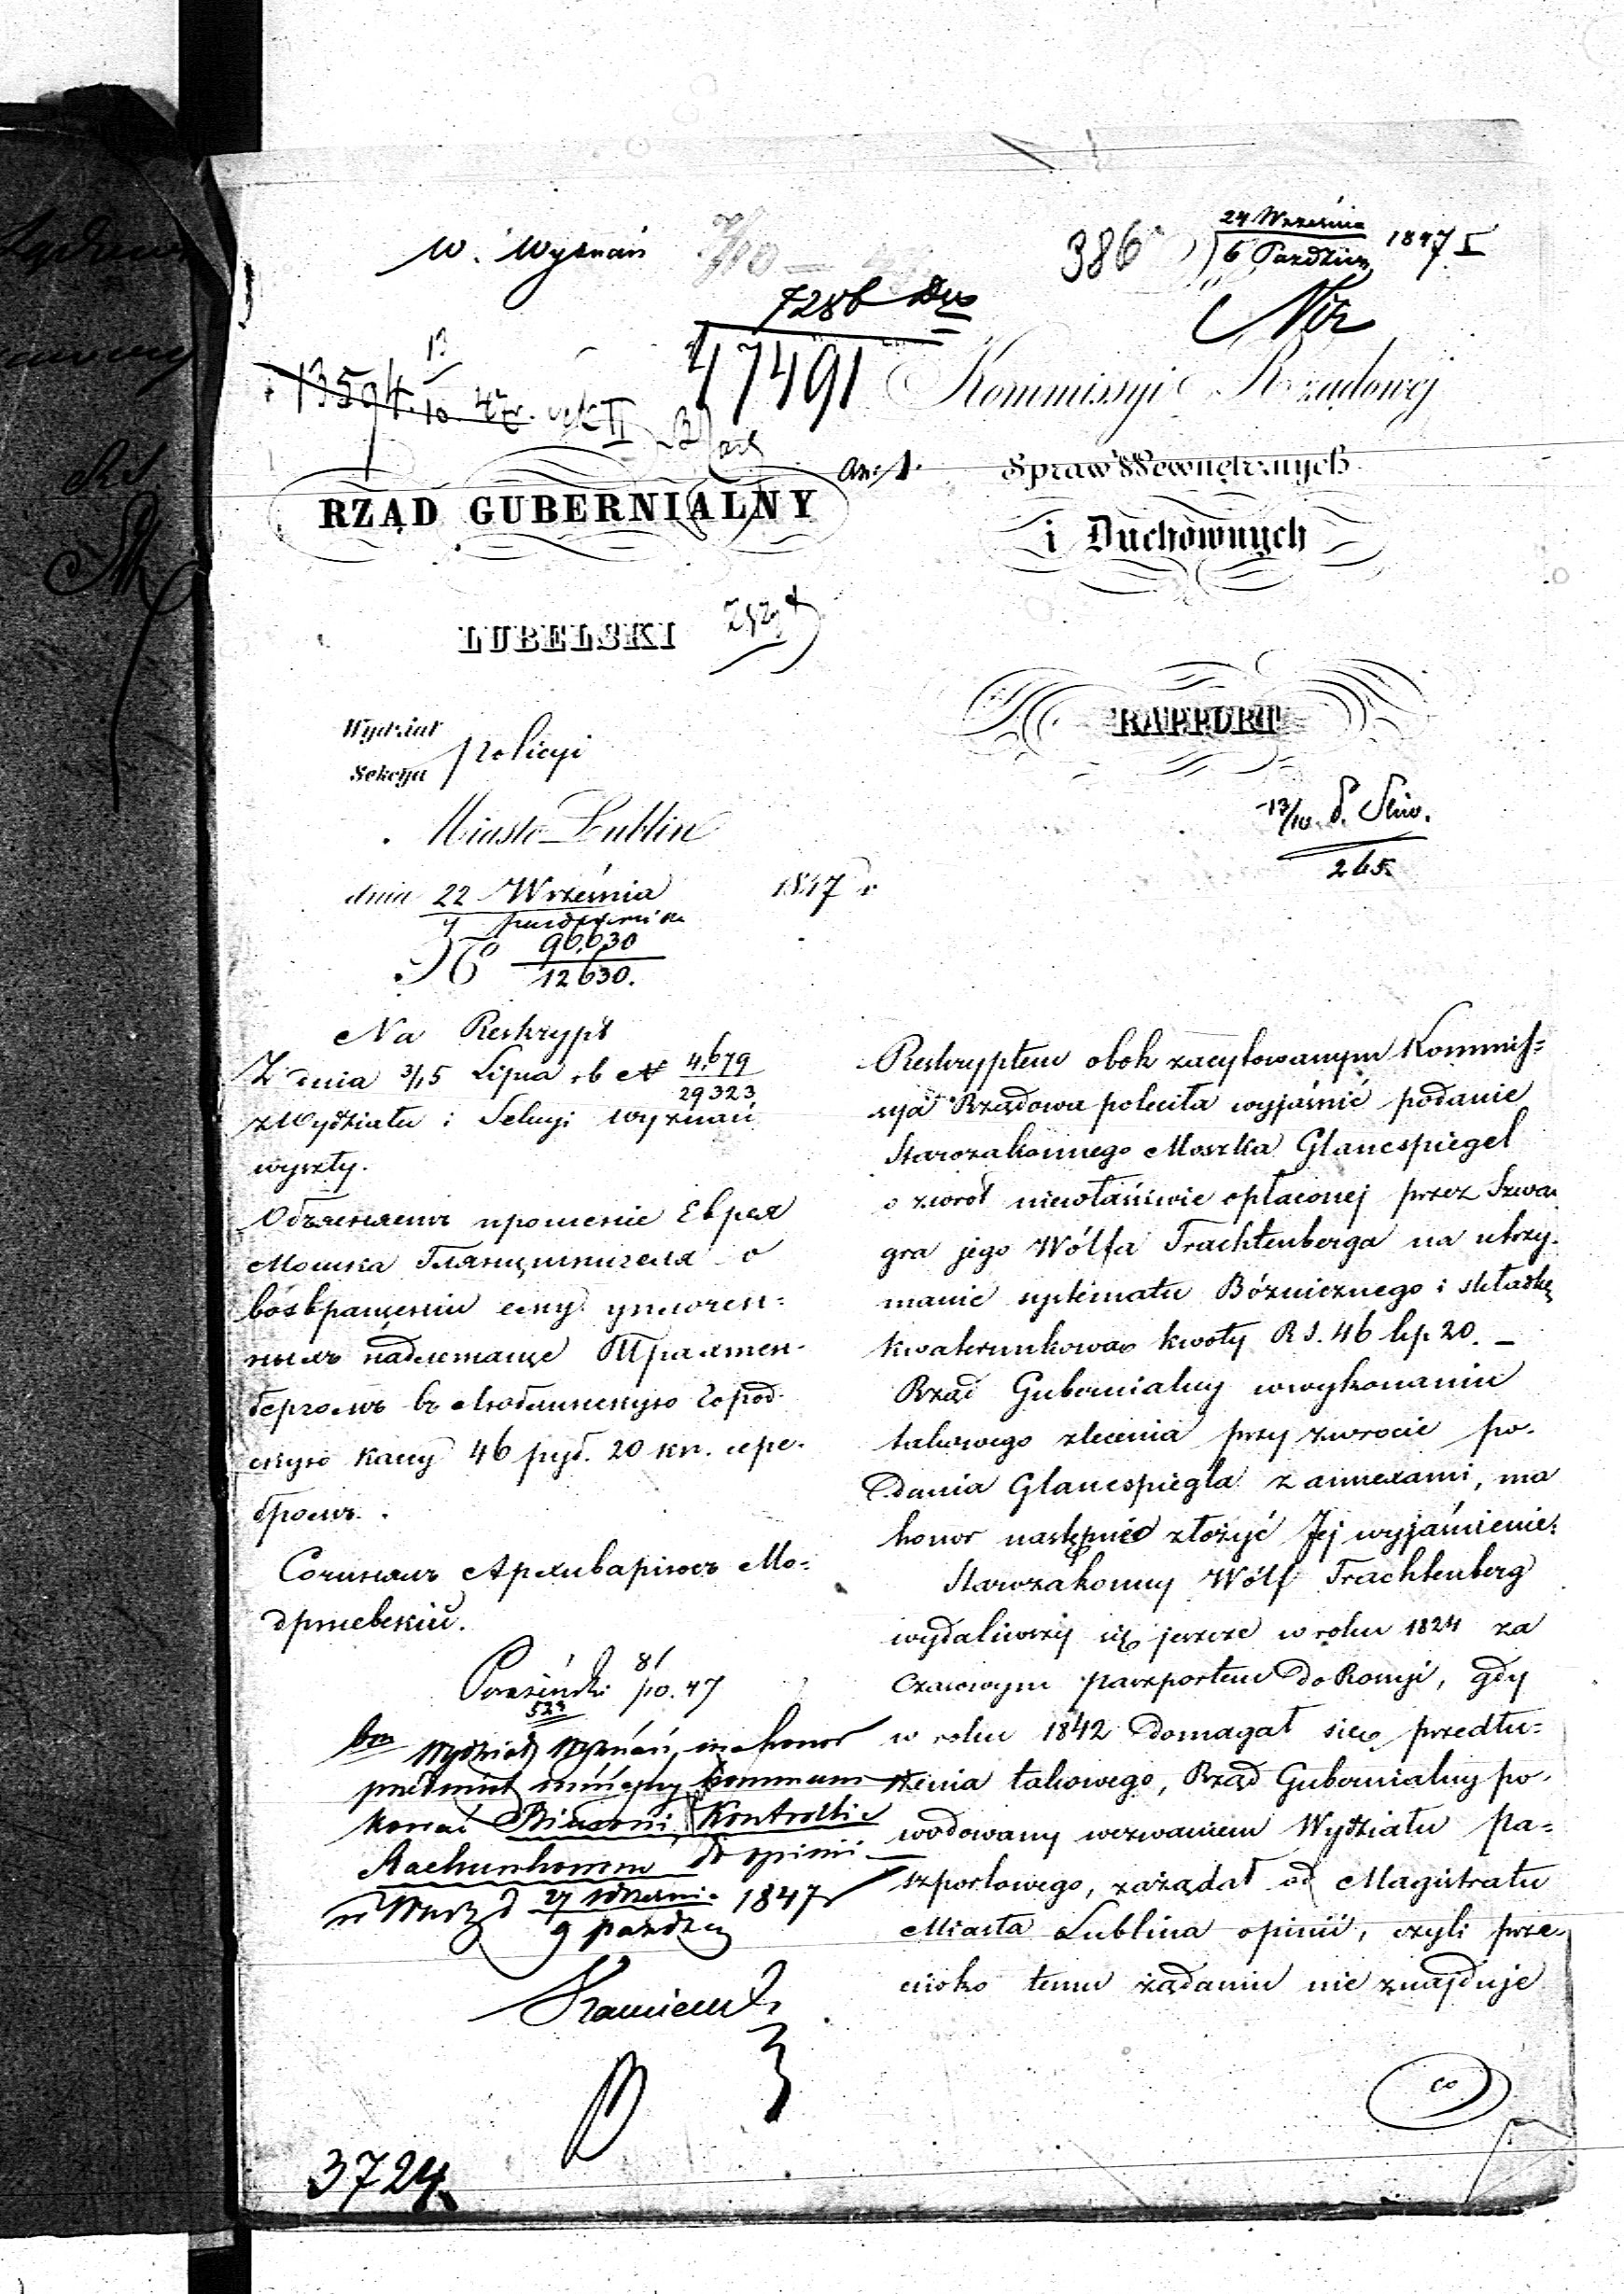 W. Wyznań
386
24 Września
6 Paździer 1847 I
7286
47491
13594
Kommissyi Rządowej
Spraw Wewnętrznych
i Duchownych
RZĄD GUBERNIALNY
LUBELSKI
RAPPORT
Wydział
Sekcya Policyi
265.
Miasto Lublin
dnia 22 Września 1847 r
4 Października
N 90,630
12630.
Na Reskrypt
Z dnia 3/15 Lipca rb N 4,679
29323
z Wydziału i Sekcyi Wyznań
wyszły.
Объясняетъ прошеніе Еврея
Мошка Глянцшпигеля о
возвращеніи ему уплочен-
ныхъ надлежаще Трахтен-
бергомъ въ Люблинскую город-
скую кассу 46 руб. 20 кп. сере-
бромъ.
Сочинялъ Архиваріюсъ Мо-
држевскій.
Wydział Wyznań, ma honor
przedmiot niniejszy kommuni
kować Biurowi Kontrolli
Rachunkowej do opinii
27 Września 1847
9 paździer
3724
Reskryptem obok zacytowanym Kommis-
sya Rządowa poleciła wyjaśnić podanie
Starozakonnego Moszka Glancspiegel
o zwrot niewłaściwie opłaconej przez Szwa-
gra jego Wólfa Trachtenberga na utrzy-
manie systematu Bóżnicznego i składkę
kwaterunkową kwoty R S. 46 kp 20. –
Rząd Gubernialny w wykonaniu
takowego zlecenia przy zwrocie po-
dania Glancspiegla z annexami, ma
honor następnie złożyć Jej wyjaśnienie:
Starozakonny Wólf Trachtenberg
wydaliwszy się jeszcze w roku 1824 za
czasowym paszportem do Rossyi, gdy
w roku 1842 domagał się przedłu-
żenia takowego, Rząd Gubernialny po-
wodowany wezwaniem Wydziału Pa-
szportowego, zażądał od Magistratu
Miasta Lublina opinii, czyli prze-
ciwko temu żądaniu nie znajduje
co